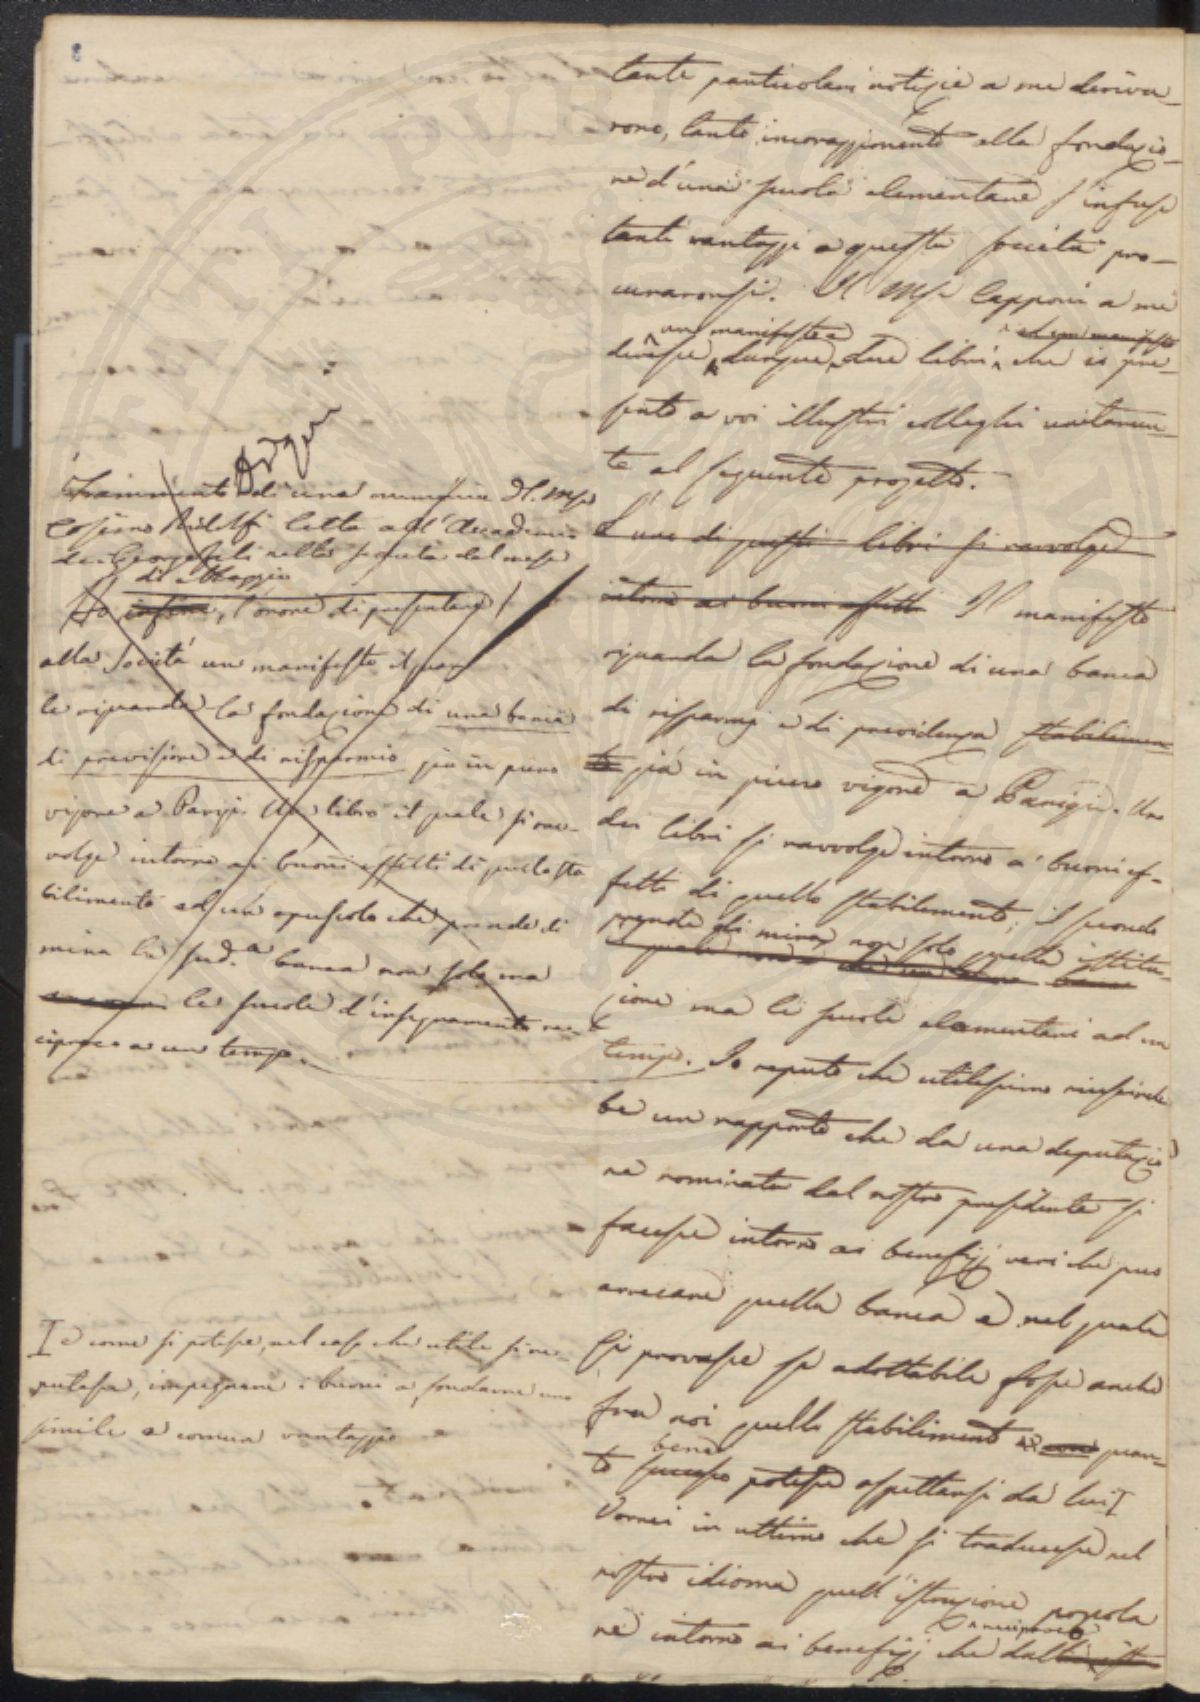 8
tante particolari notizie a me deriva-
rono, tanto incoraggiamento alla fondazio-
ne d'una scuola elementare s'infuse
tanti vantaggi a questa società pro-
curaronsi. Il Mse Capponi a me
un manifesto e
ed un manifesto
diresse dunque due libri che io pre-
sento a voi illustri colleghi unitamen-
te al seguente progetto.
L'uno di questi libri si ravvolge
intorno ai buoni effetti Il manifesto
riguarda la fondazione di una banca
di risparmj e di previdenza stabilimen-
to già in pieno vigore a Parigi. Uno
dei libri si ravvolge intorno a' buoni ef-
fetti di quello stabilimento; il secondo
prende di mira non solo quella istitu-
zione ma le scuole elementari ad un
tempo. Io reputo che utilissimo riuscireb
be un rapporto che da una deputazio
ne nominata dal nostro presidente si
facesse intorno ai benefizj veri che può
arrecare quella banca e nel quale
si provasse se adottabile fosse anche
fra noi quello stabilimento quan-
bene
to successo potesse aspettarsi da lui
Vorrei in ultimo che si traducesse nel
nostro idioma quell'istruzione popola
reciproco
re intorno ai benefizj che dall
Frammento di una memoria del Mse
Cosimo Ridolfi letta all'Accademia
dei Georgofili nella seduta del mese
di Maggio
Ho infine, l'onore di presentare
alla Società un manifesto il qua
le riguarda la fondazione di una banca
di previsione e di risparmio già in pieno
vigore a Parigi. Un libro il quale si rav-
volge intorno ai buoni effetti di quello sta
bilimento ed un opuscolo che prende di
mira la sud.a banca non solo ma
le scuole d'insegnamento re-
ciproco a un tempo.
I e come si potesse, nel caso che utile si re-
putasse, impegnare i buoni a fondarne uno
simile a comun vantaggio